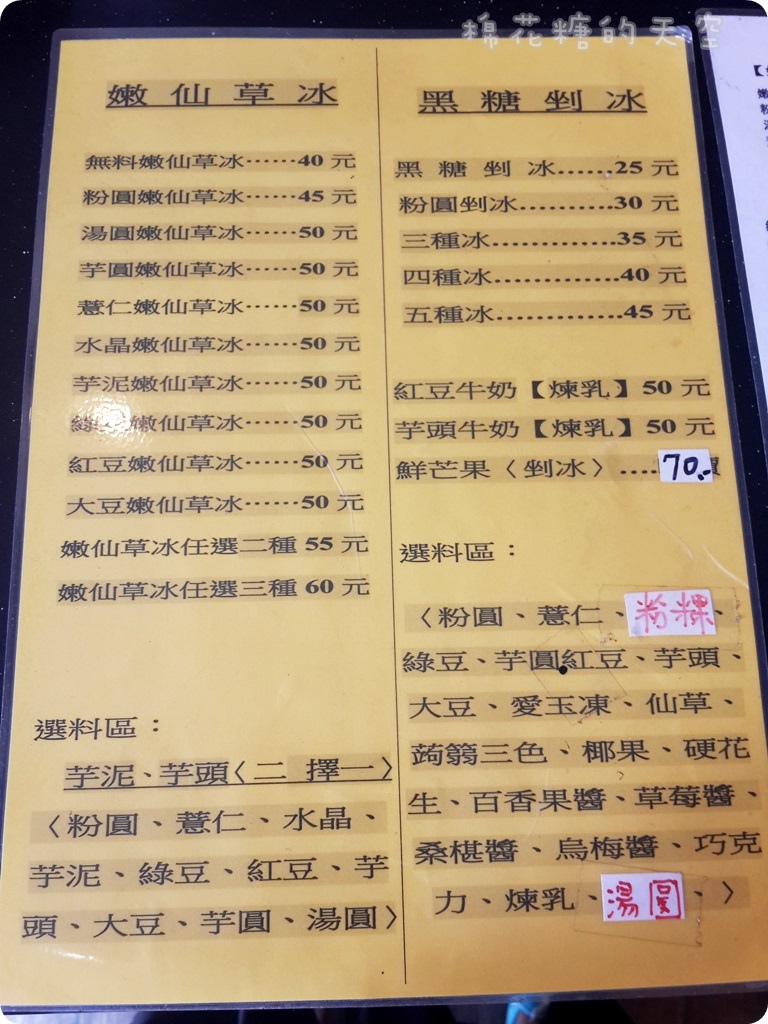 棉花糖的天空
嫩仙草冰
無料嫩仙草冰……40 元
粉圓嫩仙草冰……45 元
湯圓嫩仙草冰……50 元
芋圓嫩仙草冰……50 元
薏仁嫩仙草冰……50 元
水晶嫩仙草冰……50 元
芋泥嫩仙草冰……50 元
綠豆嫩仙草冰……50 元
紅豆嫩仙草冰……50 元
大豆嫩仙草冰……50 元
嫩仙草冰任選二種 55 元
嫩仙草冰任選三種 60 元
選料區：
芋泥、芋頭〈二 擇一〉
〈粉圓、薏仁、水晶、
芋泥、綠豆、紅豆、芋
頭、大豆、芋圓、湯圓〉
黑糖剉冰
黑 糖 剉 冰......25 元
粉圓剉冰..........30 元
三種冰.............35 元
四種冰.............40 元
五種冰.............45 元
紅豆牛奶【煉乳】50 元
芋頭牛奶【煉乳】50 元
鮮芒果〈剉冰〉....70.-
選料區：
〈粉圓、薏仁、粉粿、
綠豆、芋圓紅豆、芋頭、
大豆、愛玉凍、仙草、
蒟蒻三色、椰果、硬花
生、百香果醬、草莓醬、
桑椹醬、烏梅醬、巧克
力、煉乳、湯圓、〉